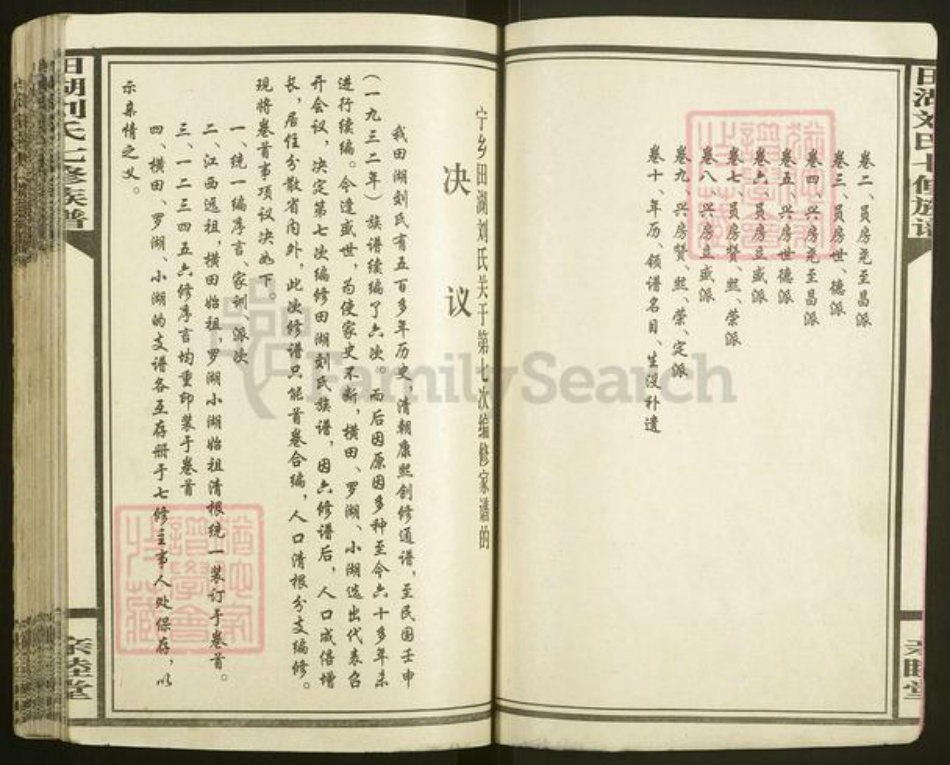 田湖刘氏七修族谱
亲睦堂
卷二、员房尧至昌派
卷三、员房世、德派
卷四、兴房尧至昌派
卷五、兴房世德派
卷六、员房立盛派
卷七、员房贤、熙、荣派
卷八、兴房立盛派
卷九、兴房贤、熙、荣、定派
卷十、年历、领谱名目、生没补遗
宁乡田湖刘氏关于第七次编修家谱的
决议
我田湖刘氏有五百多年历史，清朝康熙创修通谱，至民国壬申
（一九三二年）族谱续编了六次。而后因原因多种至今六十多年未
进行续编。今逢盛世，为使家史不断，横田、罗湖、小湖选出代表召
开会议，决定第七次编修田湖刘氏族谱，因六修谱后，人口成倍增
长，居住分散省内外，此次修谱只能首卷合编，人口清根分支编修。
现将卷首事项议决如下。
一、统一编序言、家训、派次
二、江西远祖，横田始祖，罗湖小湖始祖清根统一装订于卷首。
三、一二三四五六修序言均重印装于卷首
四、横田、罗湖、小湖的支谱各互存册于七修主事人处保存，以
示亲情之义。
田湖刘氏七修族谱
亲睦堂
FamilySearch